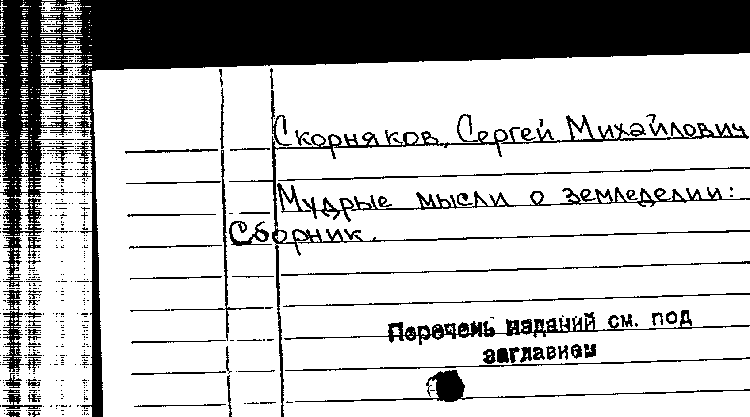 Скорняков, Сергей Михайлович
Мудрые мысли о земледелии:
Сборник.
Перечень изданий см. под
заглавием